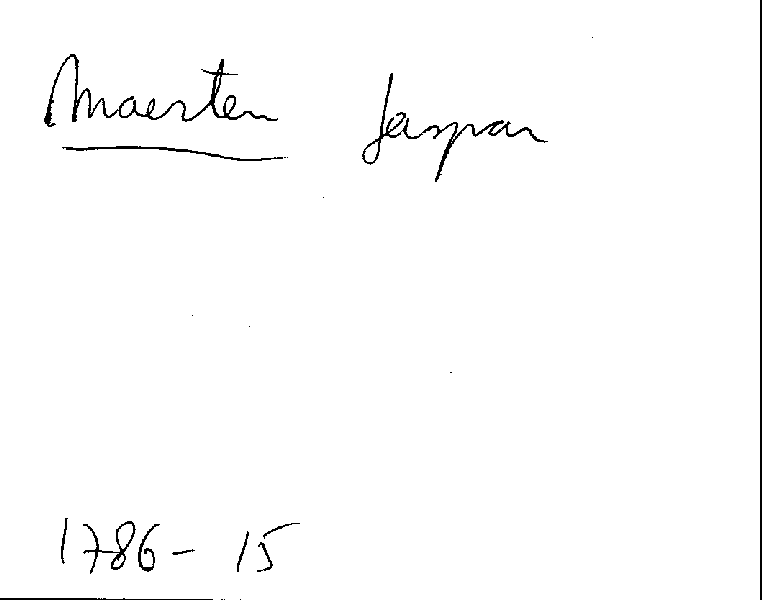 Maerten Jaspar
1786 - 15